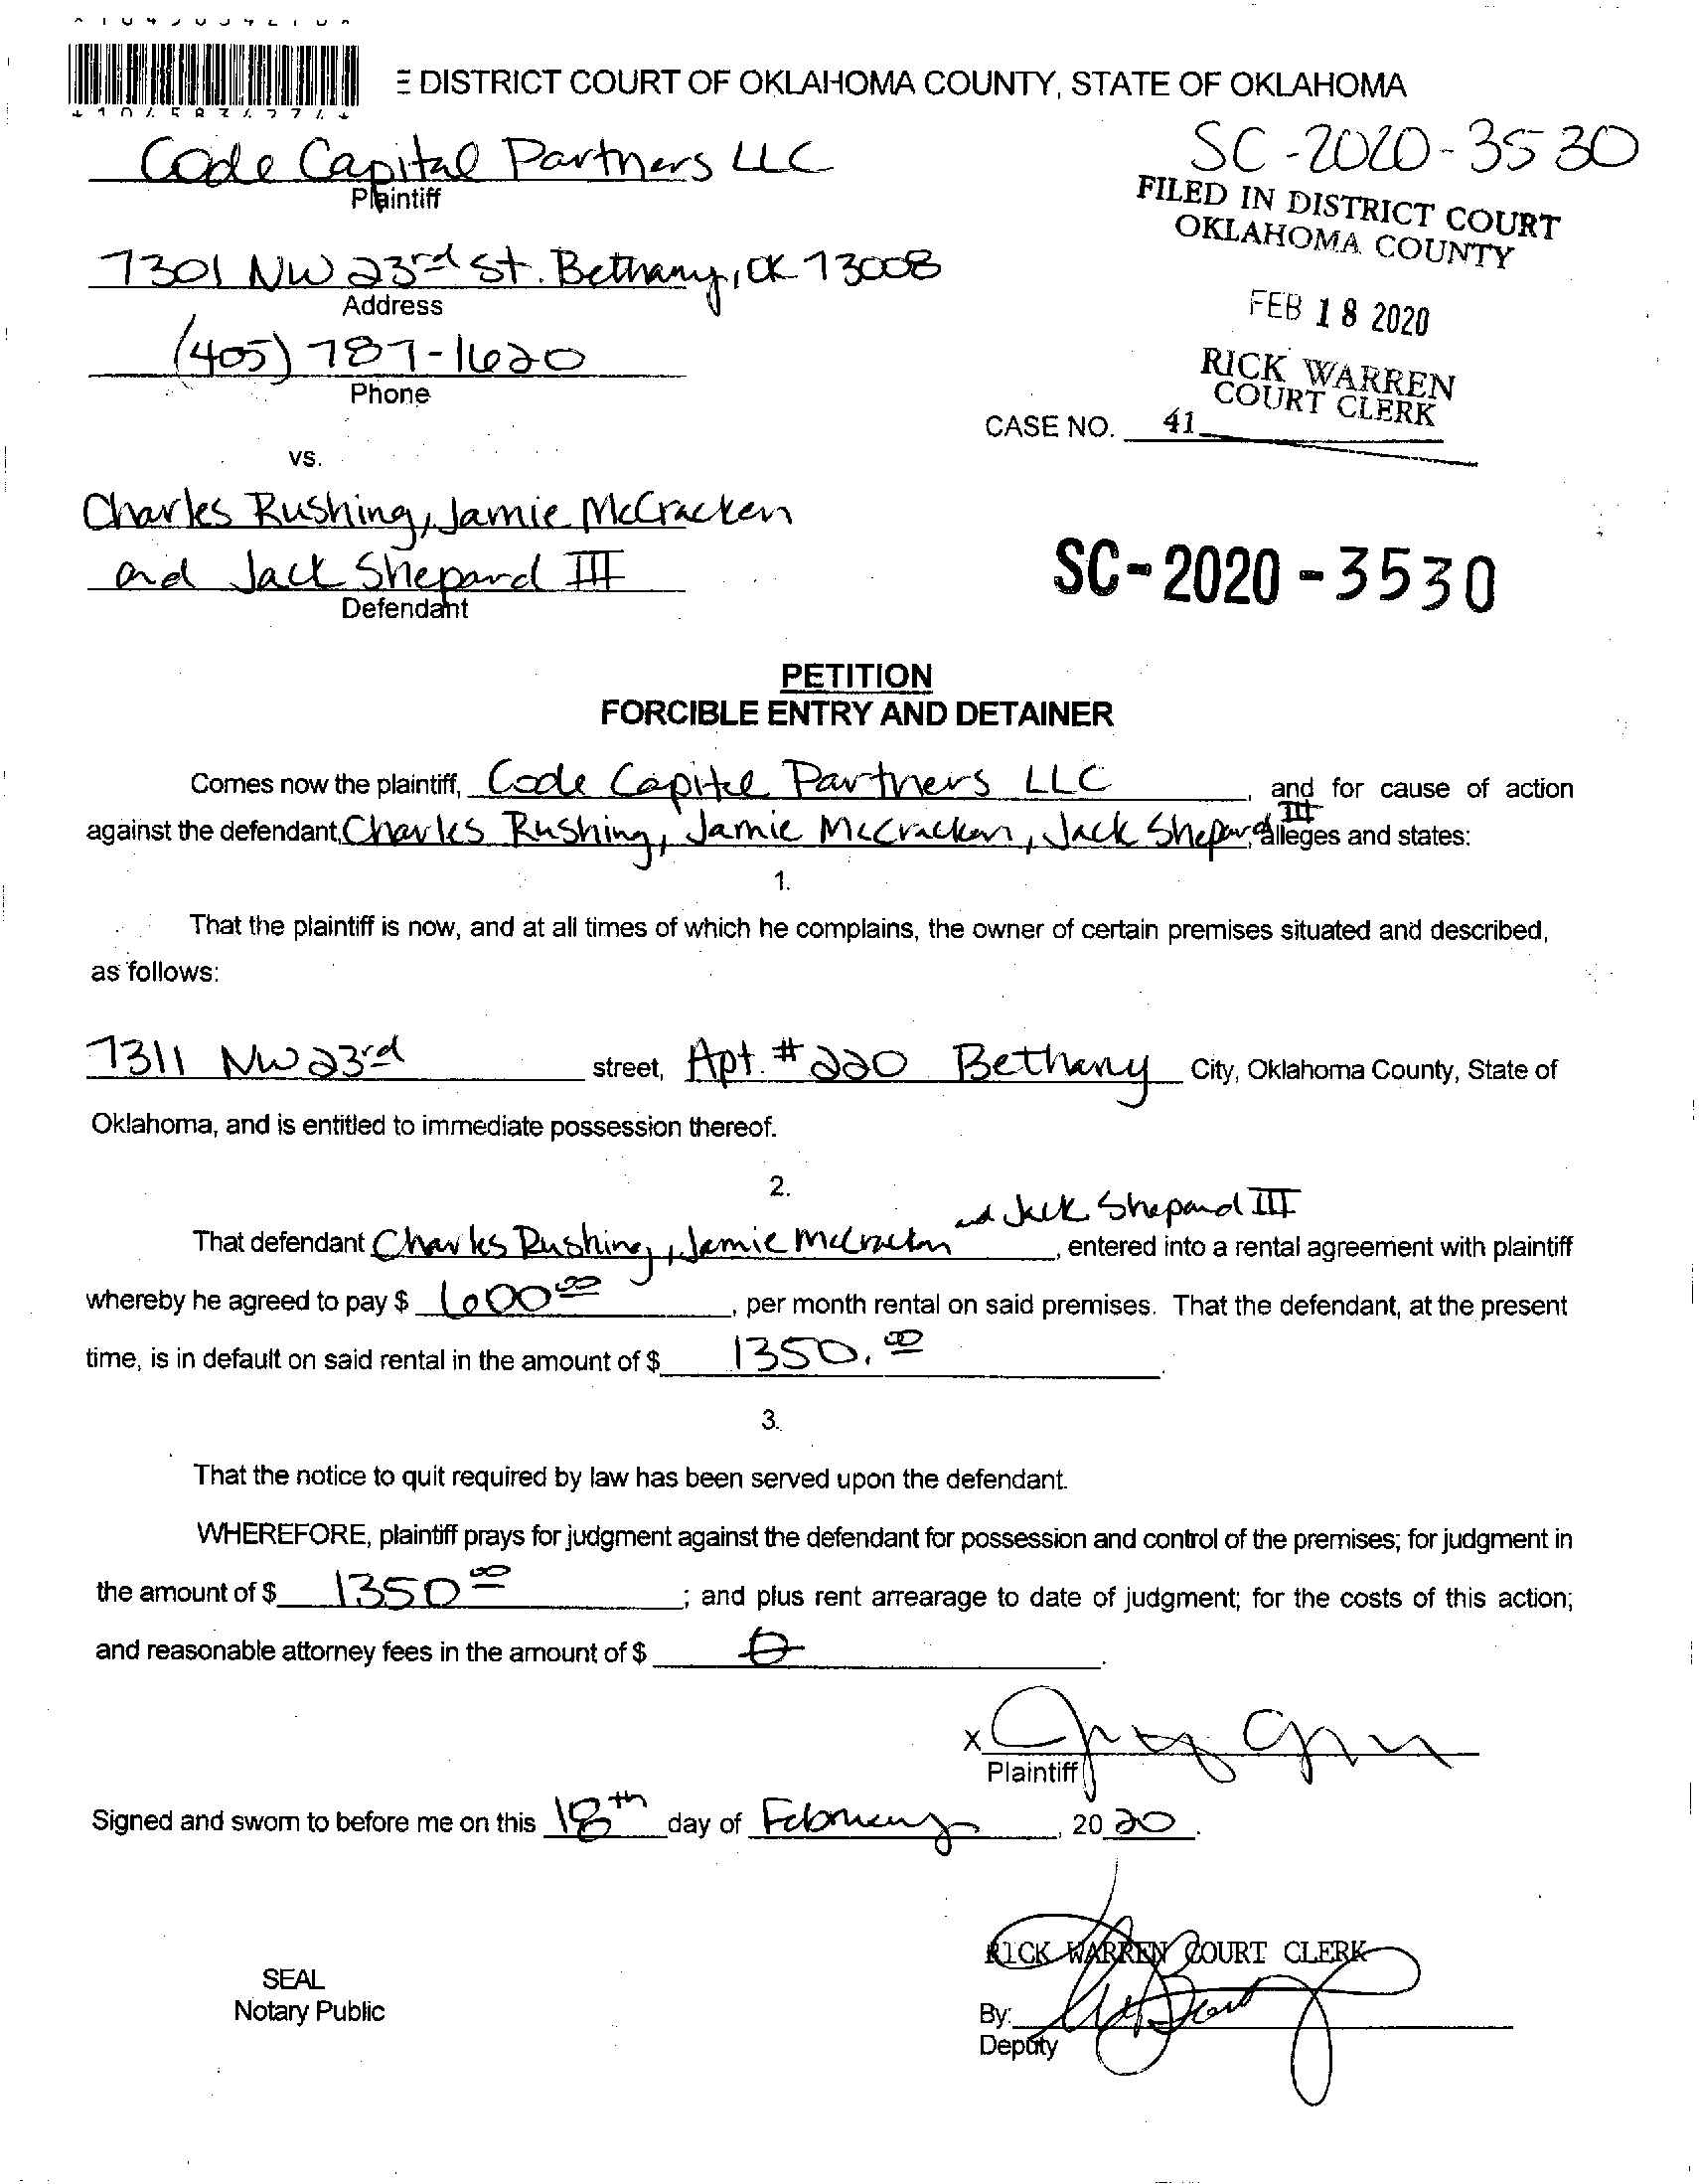 E DISTRICT COURT OF OKLAHOMA COUNTY, STATE OF OKLAHOMA
Code Capital Partners LLC
Plaintiff
SC-2020-3530
FILED IN DISTRICT COURT
OKLAHOMA COUNTY
7301 NW 23rd St. Bethany, OK 73008
Address
FEB 18 2020
(405) 787-1620
Phone
RICK WARREN
COURT CLERK
CASE NO. 41
vs.
Charles Rushing, Jamie McCracken
and Jack Shepard III
Defendant
SC-2020-3530
PETITION
FORCIBLE ENTRY AND DETAINER
Comes now the plaintiff, Code Capital Partners LLC, and for cause of action
against the defendant, Charles Rushing, Jamie McCracken, Jack Shepard III, alleges and states:
1.
That the plaintiff is now, and at all times of which he complains, the owner of certain premises situated and described,
as follows:
7311 NW 23rd street, Apt. #220 Bethany City, Oklahoma County, State of
Oklahoma, and is entitled to immediate possession thereof.
2.
and Jack Shepard III
That defendant Charles Rushing, Jamie McCracken, entered into a rental agreement with plaintiff
whereby he agreed to pay $ 600 00, per month rental on said premises. That the defendant, at the present
time, is in default on said rental in the amount of $ 1350.00.
3.
That the notice to quit required by law has been served upon the defendant.
WHEREFORE, plaintiff prays for judgment against the defendant for possession and control of the premises; for judgment in
the amount of $ 1350 00; and plus rent arrearage to date of judgment; for the costs of this action;
and reasonable attorney fees in the amount of $ 0.
X
Plaintiff
Signed and sworn to before me on this 18th day of February, 2020.
RICK WARREN COURT CLERK
SEAL
Notary Public
By:
Deputy